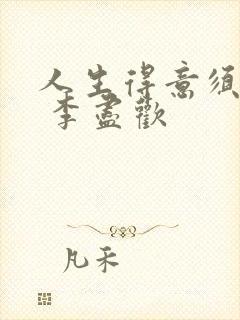 人生得意须
李盡歡
凡禾